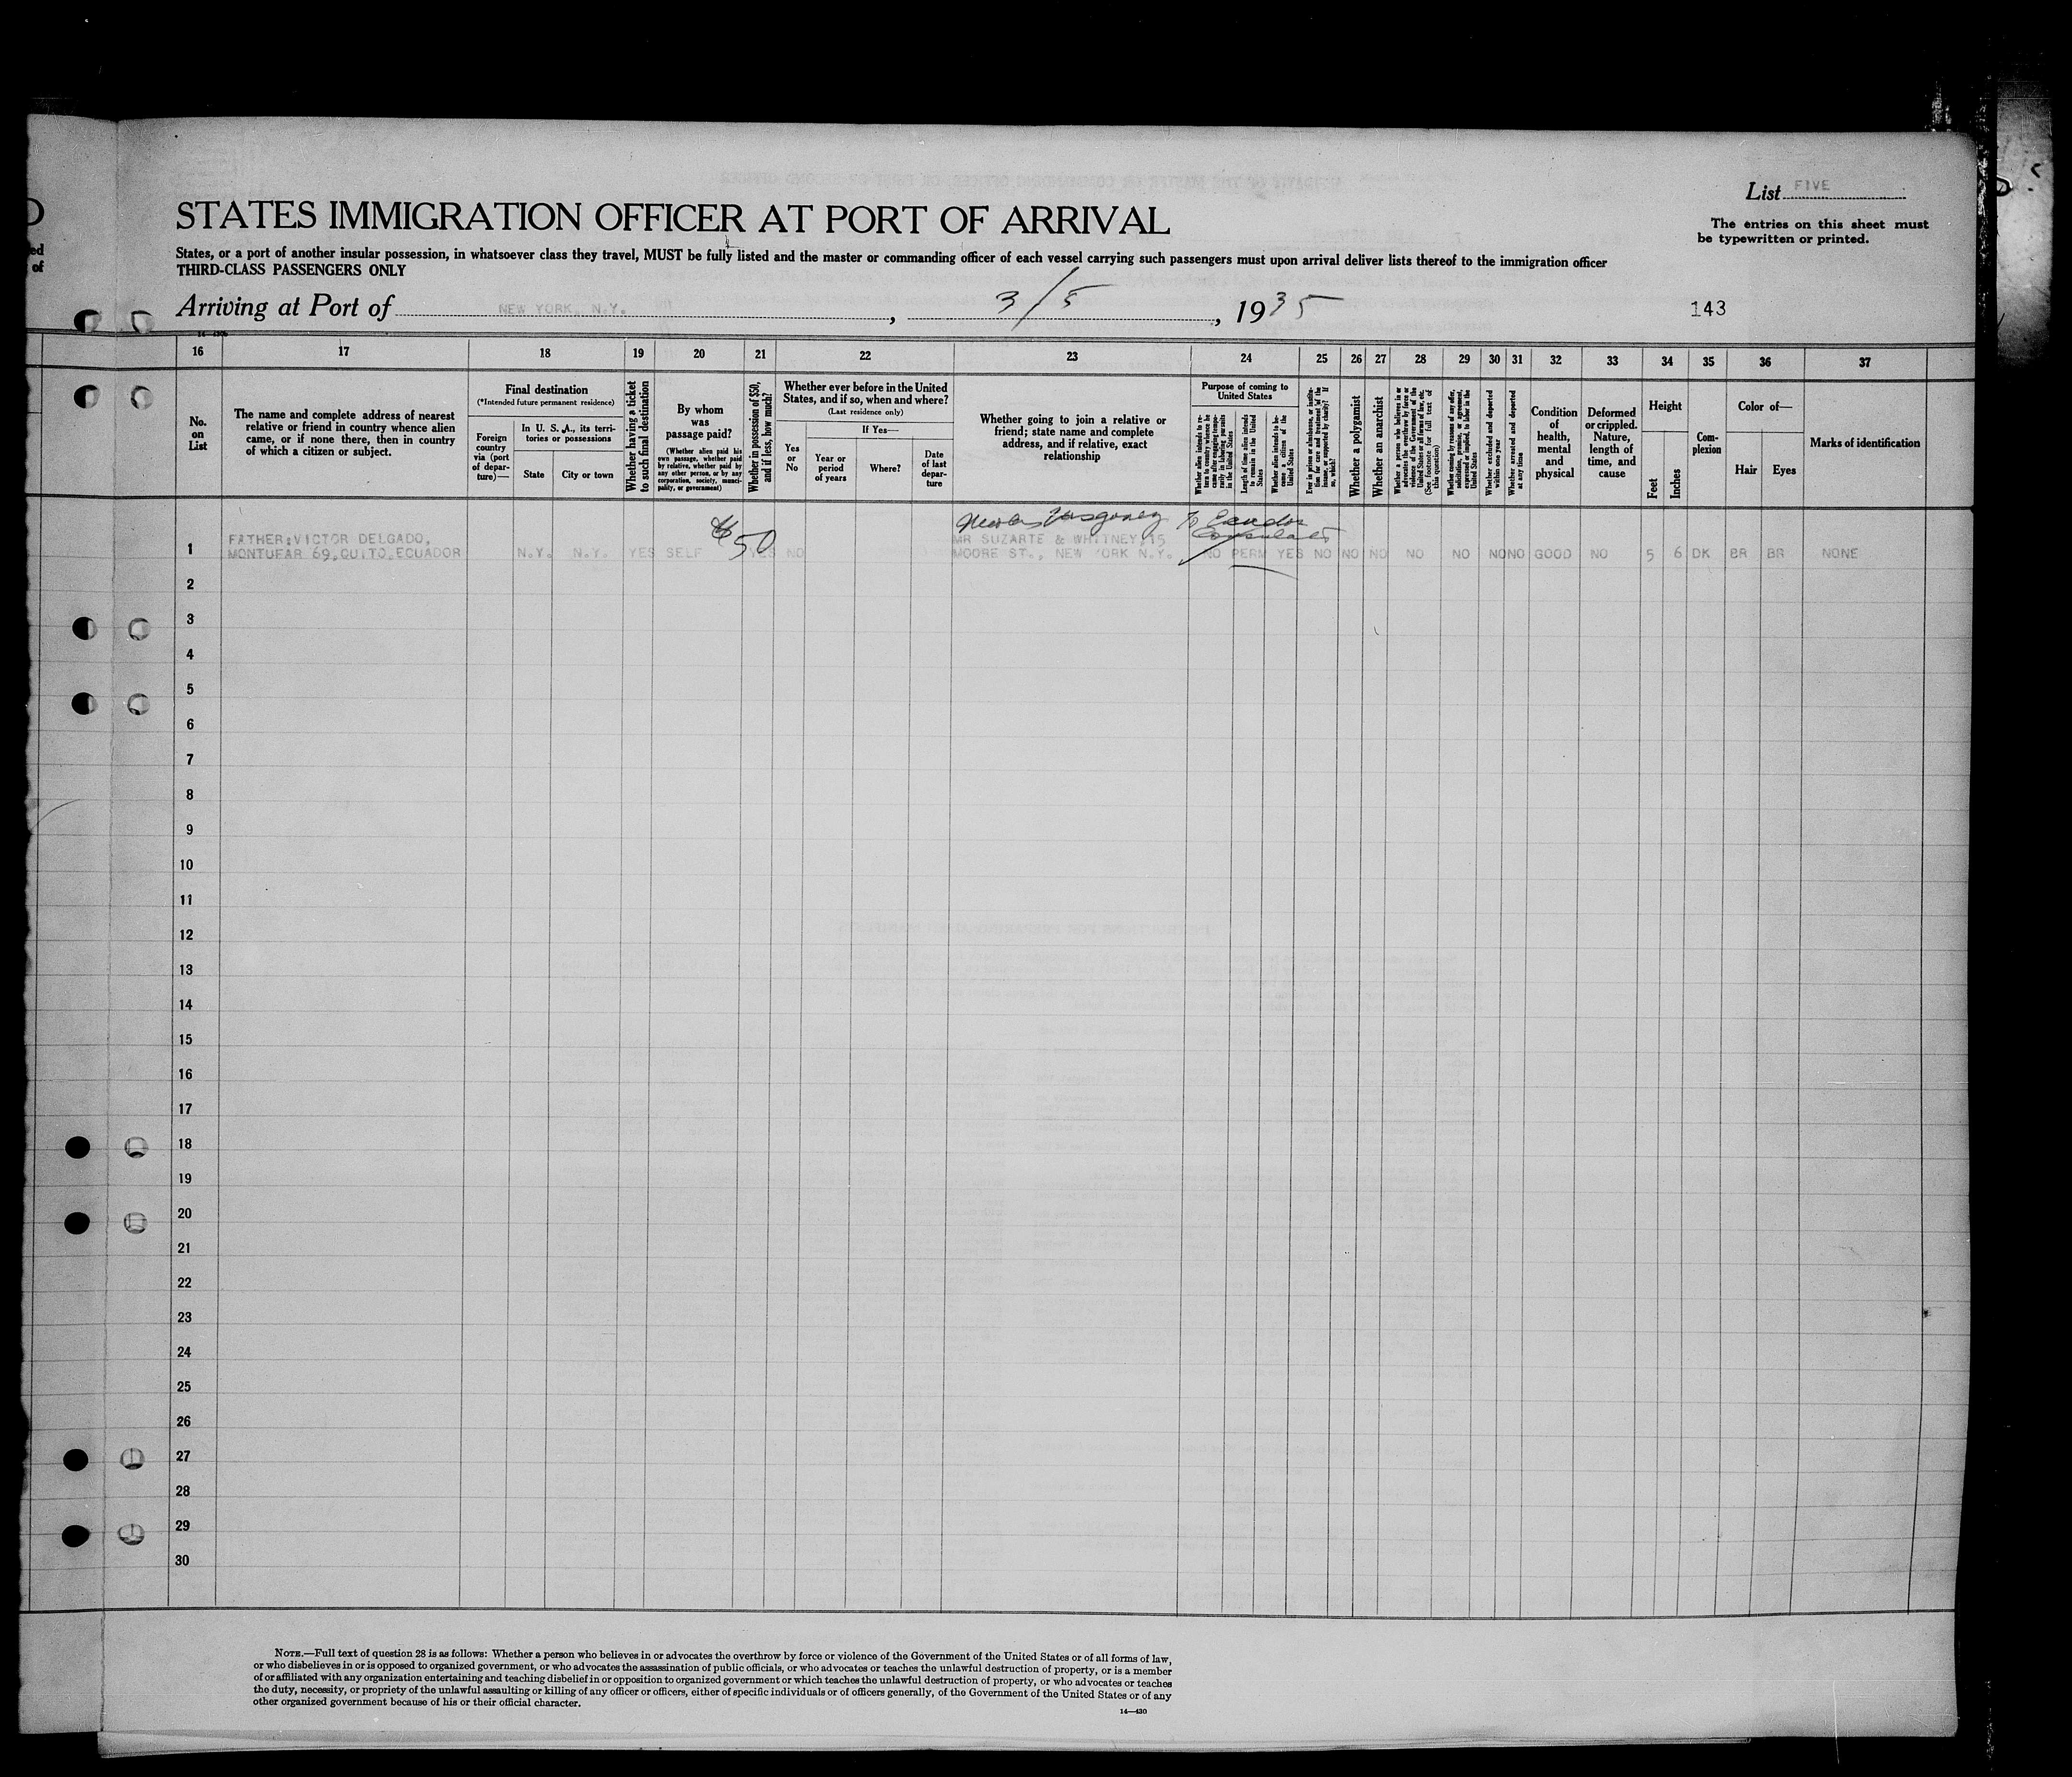 List FIVE
STATES IMMIGRATION OFFICER AT PORT OF ARRIVAL
The entries on this sheet must
be typewritten or printed.
States, or a port of another insular possession, in whatsoever class they travel, MUST be fully listed and the master or commanding officer of each vessel carrying such passengers must upon arrival deliver lists thereof to the immigration officer
THIRD-CLASS PASSENGERS ONLY
Arriving at Port of NEW YORK, N.Y., 3/5, 1935
143
16 17 18 19 20 21 22 23 24 25 26 27 28 29 30 31 32 33 34 35 36 37
No.
on
List
The name and complete address of nearest
relative or friend in country whence alien
came, or if none there, then in country
of which a citizen or subject.
Final destination
(*Intended future permanent residence)
Foreign
country
via (port
of depar-
ture)—
In U. S. A., its terri-
tories or possessions
State
City or town
Whether having a ticket
to such final destination
By whom
was
passage paid?
(Whether alien paid his
own passage, whether paid
by relative, whether paid by
any other person, or by any
corporation, society, munici-
pality, or government)
Whether in possession of $50,
and if less, how much?
Whether ever before in the United
States, and if so, when and where?
(Last residence only)
Yes
or
No
If Yes—
Year or
period
of years
Where?
Date
of last
depar-
ture
Whether going to join a relative or
friend; state name and complete
address, and if relative, exact
relationship
Purpose of coming to
United States
Whether alien intends to re-
turn to country whence he
came after engaging tempo-
rarily in laboring pursuits
in the United States
Length of time alien intends
to remain in the United
States
Whether alien intends to be-
come a citizen of the
United States
Ever in prison or almshouse, or institu-
tion for care and treatment of the
insane, or supported by charity? If
so, which?
Whether a polygamist
Whether an anarchist
Whether a person who believes in or
advocates the overthrow by force or
violence of the Government of the
United States or all forms of law, etc.
(See footnote for full text of
this question)
Whether coming by reasons of any offer,
solicitation, promise, or agreement,
expressed or implied, to labor in the
United States
Whether excluded and deported
within one year
Whether arrested and deported
at any time
Condition
of
health,
mental
and
physical
Deformed
or crippled.
Nature,
length of
time, and
cause
Height
Feet
Inches
Com-
plexion
Color of—
Hair
Eyes
Marks of identification
To Ecuador
Consulate
$50
FATHER:VICTOR DELGADO,
MR SUZARTE & WHITNEY, 15
1 MONTUFAR 69,QUITO,ECUADOR N.Y. N.Y. YES SELF YES NO MOORE ST., NEW YORK N.Y. NO PERM YES NO NO NO NO NO NO NO GOOD NO 5 6 DK BR BR NONE
2
3
4
5
6
7
8
9
10
11
12
13
14
15
16
17
18
19
20
21
22
23
24
25
26
27
28
29
30
NOTE.—Full text of question 28 is as follows: Whether a person who believes in or advocates the overthrow by force or violence of the Government of the United States or of all forms of law,
or who disbelieves in or is opposed to organized government, or who advocates the assassination of public officials, or who advocates or teaches the unlawful destruction of property, or is a member
of or affiliated with any organization entertaining and teaching disbelief in or opposition to organized government or which teaches the unlawful destruction of property, or who advocates or teaches
the duty, necessity, or propriety of the unlawful assaulting or killing of any officer or officers, either of specific individuals or of officers generally, of the Government of the United States or of any
other organized government because of his or their official character.
14—430